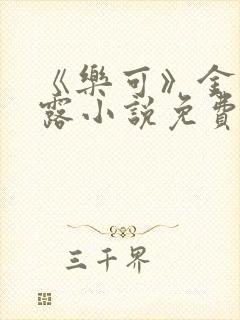 《樂可》金
露小說免費
三千界